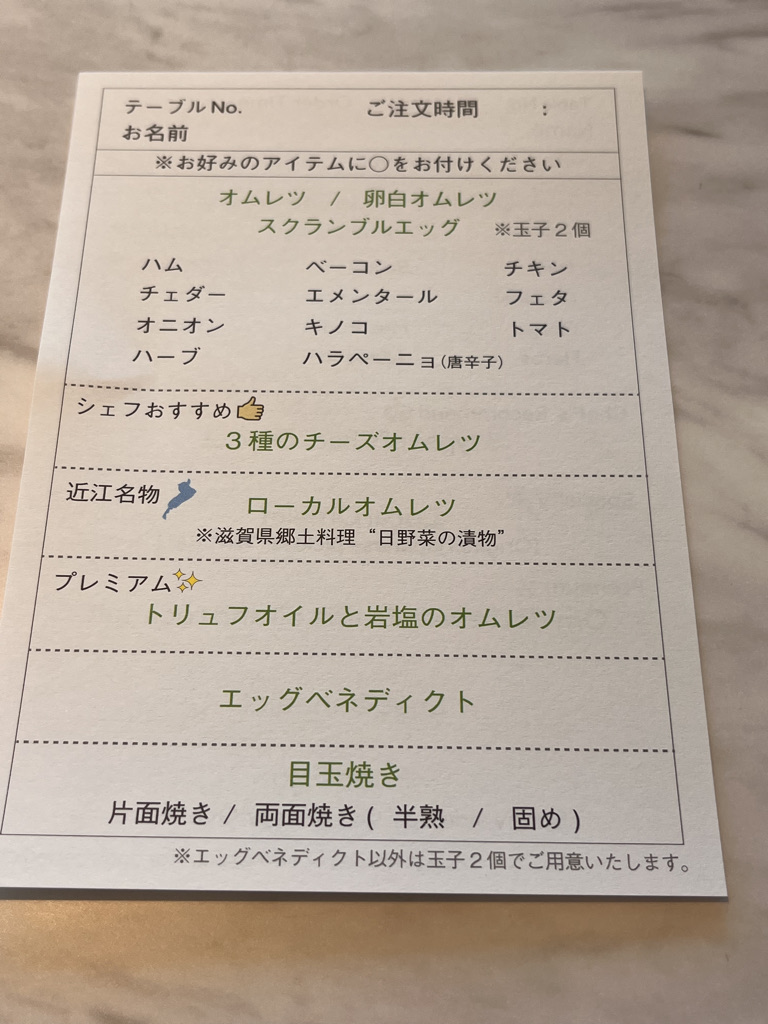 テーブルNo. ご注文時間 :
お名前
※お好みのアイテムに○をお付けください
オムレツ / 卵白オムレツ
スクランブルエッグ ※玉子2個
ハム ベーコン チキン
チェダー エメンタール フェタ
オニオン キノコ トマト
ハーブ ハラペーニョ(唐辛子)
シェフおすすめ👍
3種のチーズオムレツ
近江名物 ローカルオムレツ
※滋賀県郷土料理“日野菜の漬物”
プレミアム✨
トリュフオイルと岩塩のオムレツ
エッグベネディクト
目玉焼き
片面焼き / 両面焼き( 半熟 / 固め )
※エッグベネディクト以外は玉子2個でご用意いたします。